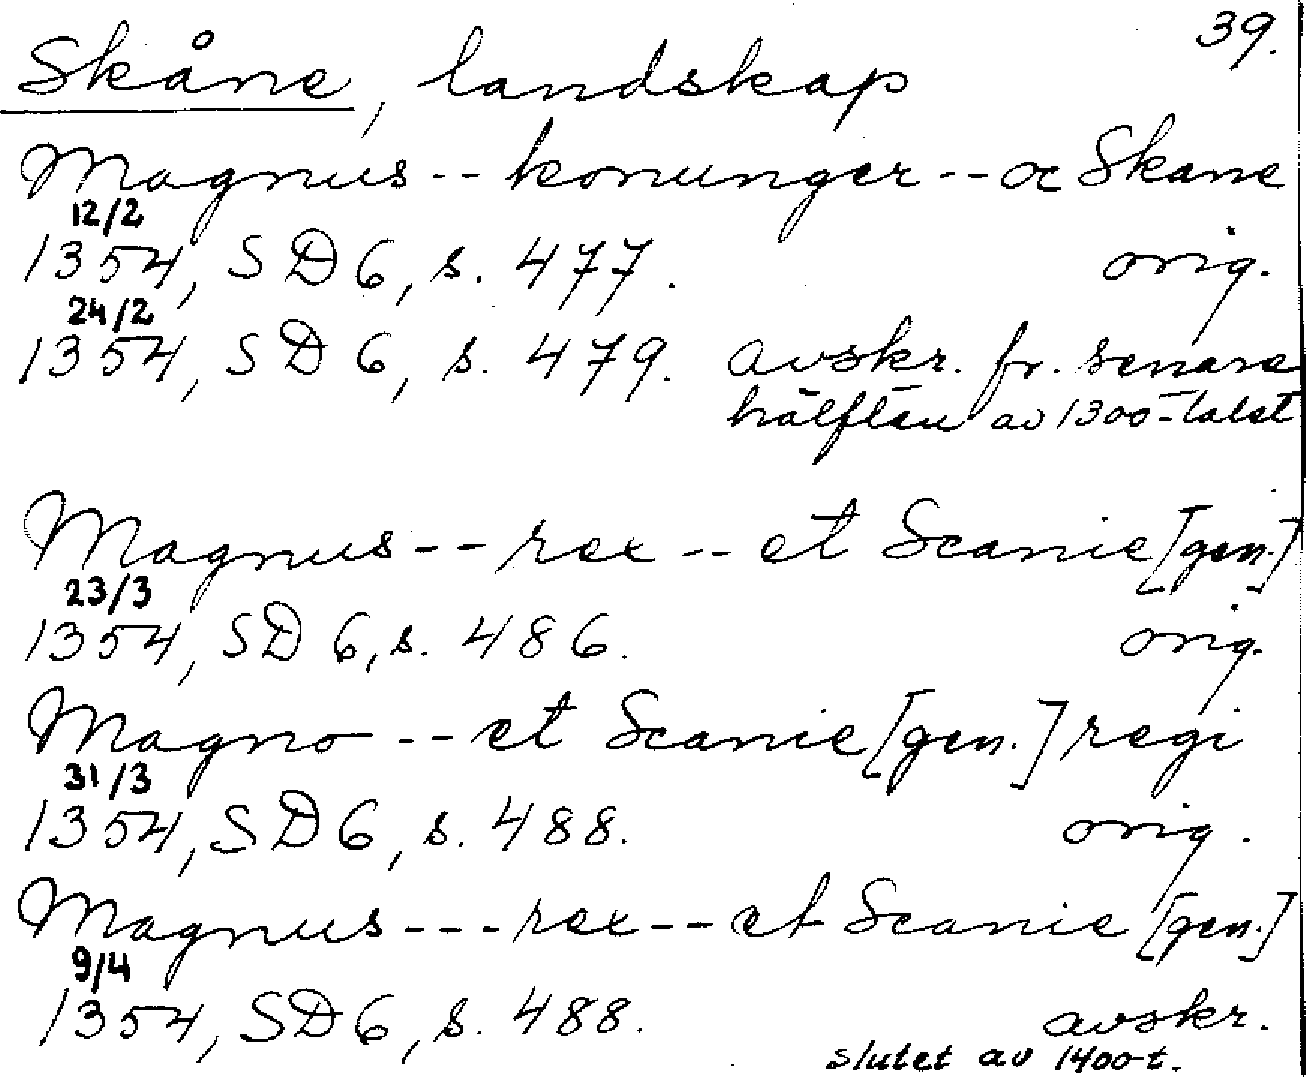 39.
Skåne, landskap
Magnus -- konunger -- oc Skane
12/2
1354, SD 6, s. 477. orig.
24/2
1354, SD 6, s. 479. avskr. fr. senare
hälften av 1300-talet
Magnus -- rex -- et Scanie [gen.]
23/3
1354, SD 6, s. 486. orig.
Magno -- et Scanie [gen.] regi
31/3
1354, SD 6, s. 488. orig.
Magnus --- rex -- et Scanie [gen.]
9/4
1354, SD 6, s. 488. avskr.
slutet av 1400-t.